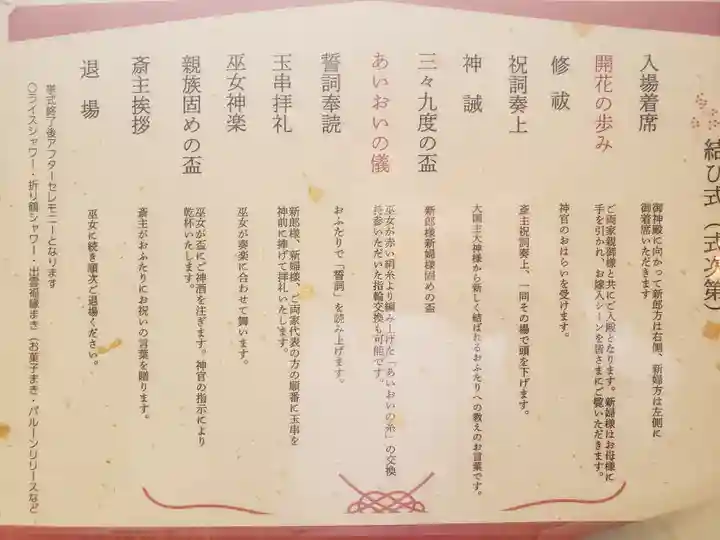 結び式（式次第）
入場着席
御神殿に向かって新郎方は右側、新婦方は左側に
御着席いただきます
開花の歩み
ご両家親御様と共にご入殿となります。新婦様はお母様に
手を引かれ、お嫁入シーンを皆さまにご覧いただきます。
修祓
神官のおはらいを受けます。
祝詞奏上
斎主祝詞奏上、一同その場で頭を下げます。
神誡
大国主大神様から新しく結ばれるおふたりへの教えのお言葉です。
三々九度の盃
新郎様新婦様固めの盃
あいおいの儀
巫女が赤い絹糸より編み上げた「あいおいの糸」の交換
お持参いただいた指輪交換も可能です。
誓詞奉読
おふたりで「誓詞」を読み上げます。
玉串拝礼
新郎様、新婦様、ご両家代表の方の順番に玉串を
神前に捧げて拝礼いたします。
巫女神楽
巫女が奏楽に合わせて舞います。
親族固めの盃
巫女が盃にご神酒を注ぎます。神官の指示により
乾杯いたします。
斎主挨拶
斎主がおふたりにお祝いの言葉を贈ります。
退場
巫女に続き順次ご退場ください。
挙式終了後アフターセレモニーとなります
〇ライスシャワー・折り鶴シャワー・出雲福縁まき（お菓子まき・バルーンリリースなど